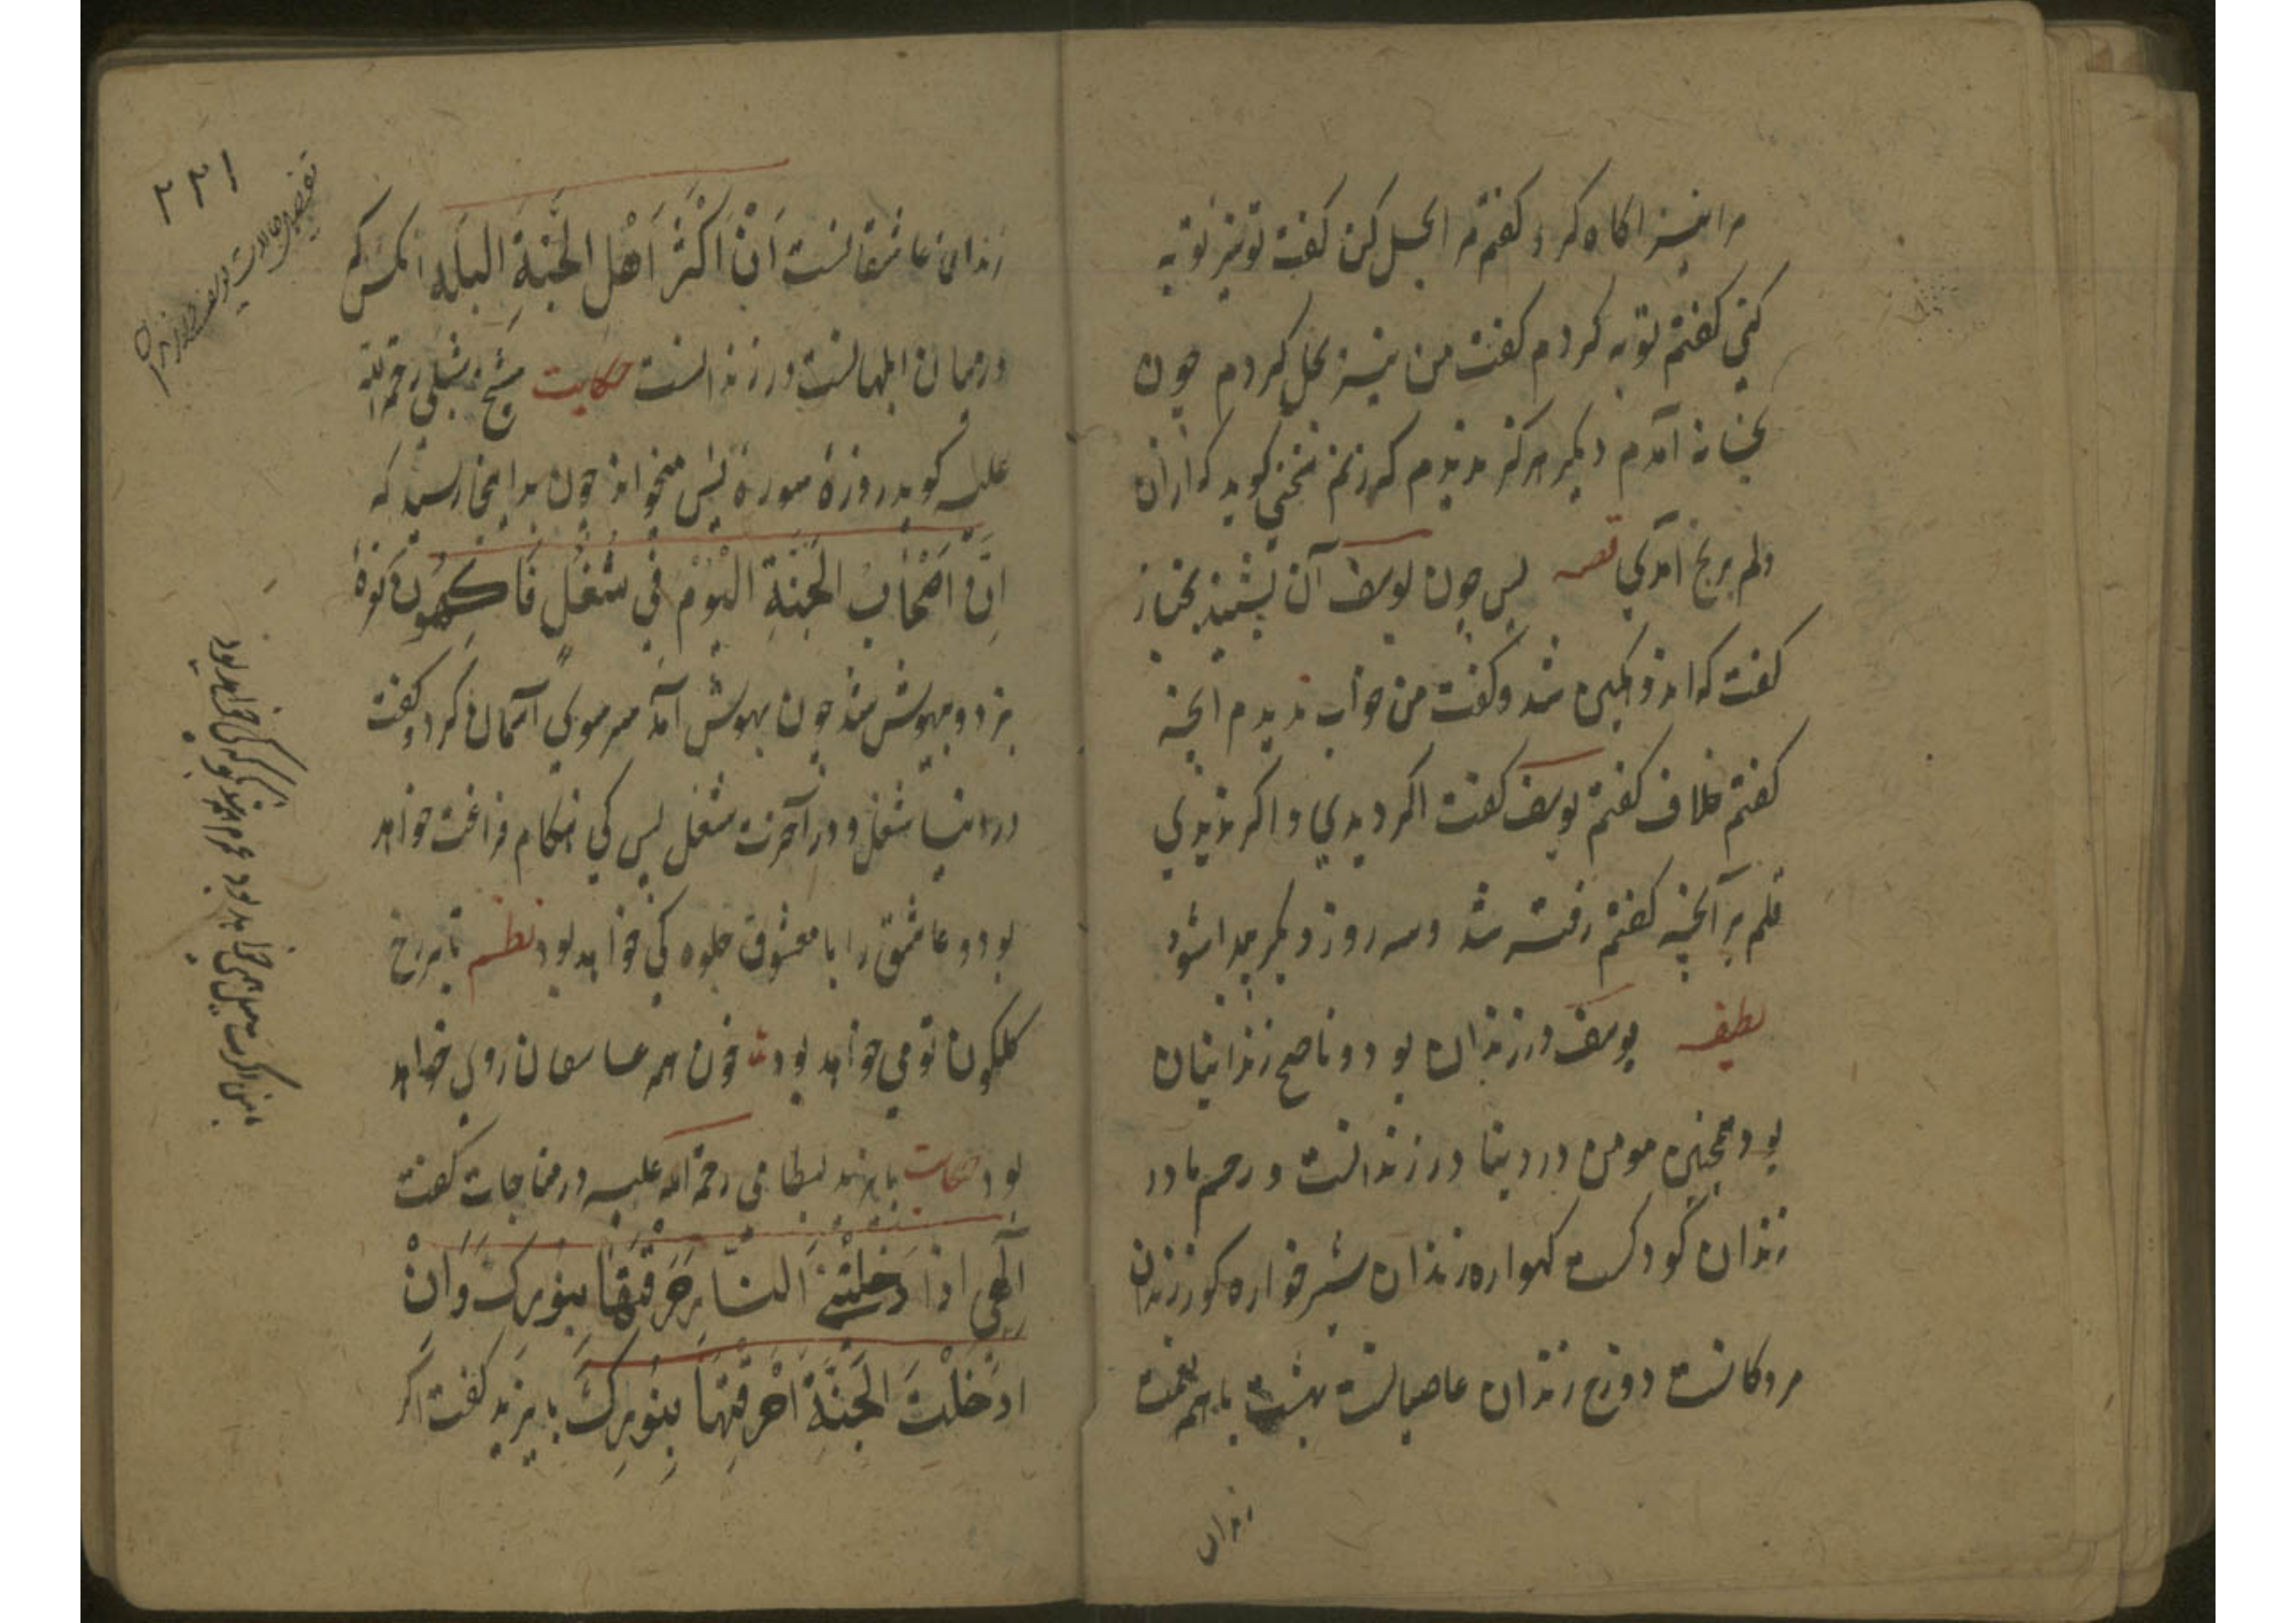 مرا نیز اکاه کرد و کفتم مرا بحل کن کفت تو نیز توبه
کنی کفتم توبه کردم کفت من نیز بحل کردم چون
بخانه آمدم دیکر هرکز ندیدم که زنم سخنی کوید که ازان
دلم برنج آمدی قصه پس چون یوسف آن بشنید بخباز
کفت که اندوهکین شد و کفت من خواب ندیدم آنچه
کفتم خلاف کفتم یوسف کفت اکر دیدی و اکر ندیدی
قلم بر آنچه کفتم رفته شد و سه روز دیکر پیدا شود
لطیفه یوسف در زندان بود و ناصح زندانیان
بود همچنین مومن در دینا در زندانست و رحم مادر
زندان کودکست کهواره زندان شیرخواره کور زندان
مردکانست دوزخ زندان عاصیانست بهشت با همه نعمت
زندان
۲۲۱
زندان عاشقانست اَنَّ اَکْثَرَ اَهْلِ الجَنَّةِ البَلَه آنکس که
درمیان ابلهانست در زندانست حکایت شیخ شبلی رحمة الله
علیه کوید روزی سورة یس میخواند چون بدانجا رسید که
اِنَّ اَصْحَابَ الجَنَّةِ الیَوْمَ فِی شُغُلٍ فَاکِهُونَ نعره
بزد و بیهوش شد چون بهوش آمد سر سوی آسمان کرد و کفت
در دنیا شغل و در آخرت شغل پس کی هنکام فراغت خواهد
بود و عاشق را با معشوق جلوه کی خواهد بود نظم تا بر رخ
کلکون تو می خواهد بود خون همه عاشقان روی خواهد
بود حکایت بایزید بسطامی رحمة الله علیه در مناجات کفت
اِلٰهِی اذا دَخَلْتَنِی النَّارِ حَرَقتُهَا بِنُورِکَ وَانْ
ادْخَلْتَ الجَنَّةَ اَحْرَقْتُهَا بِنُورِکَ بایزید کفت اکر